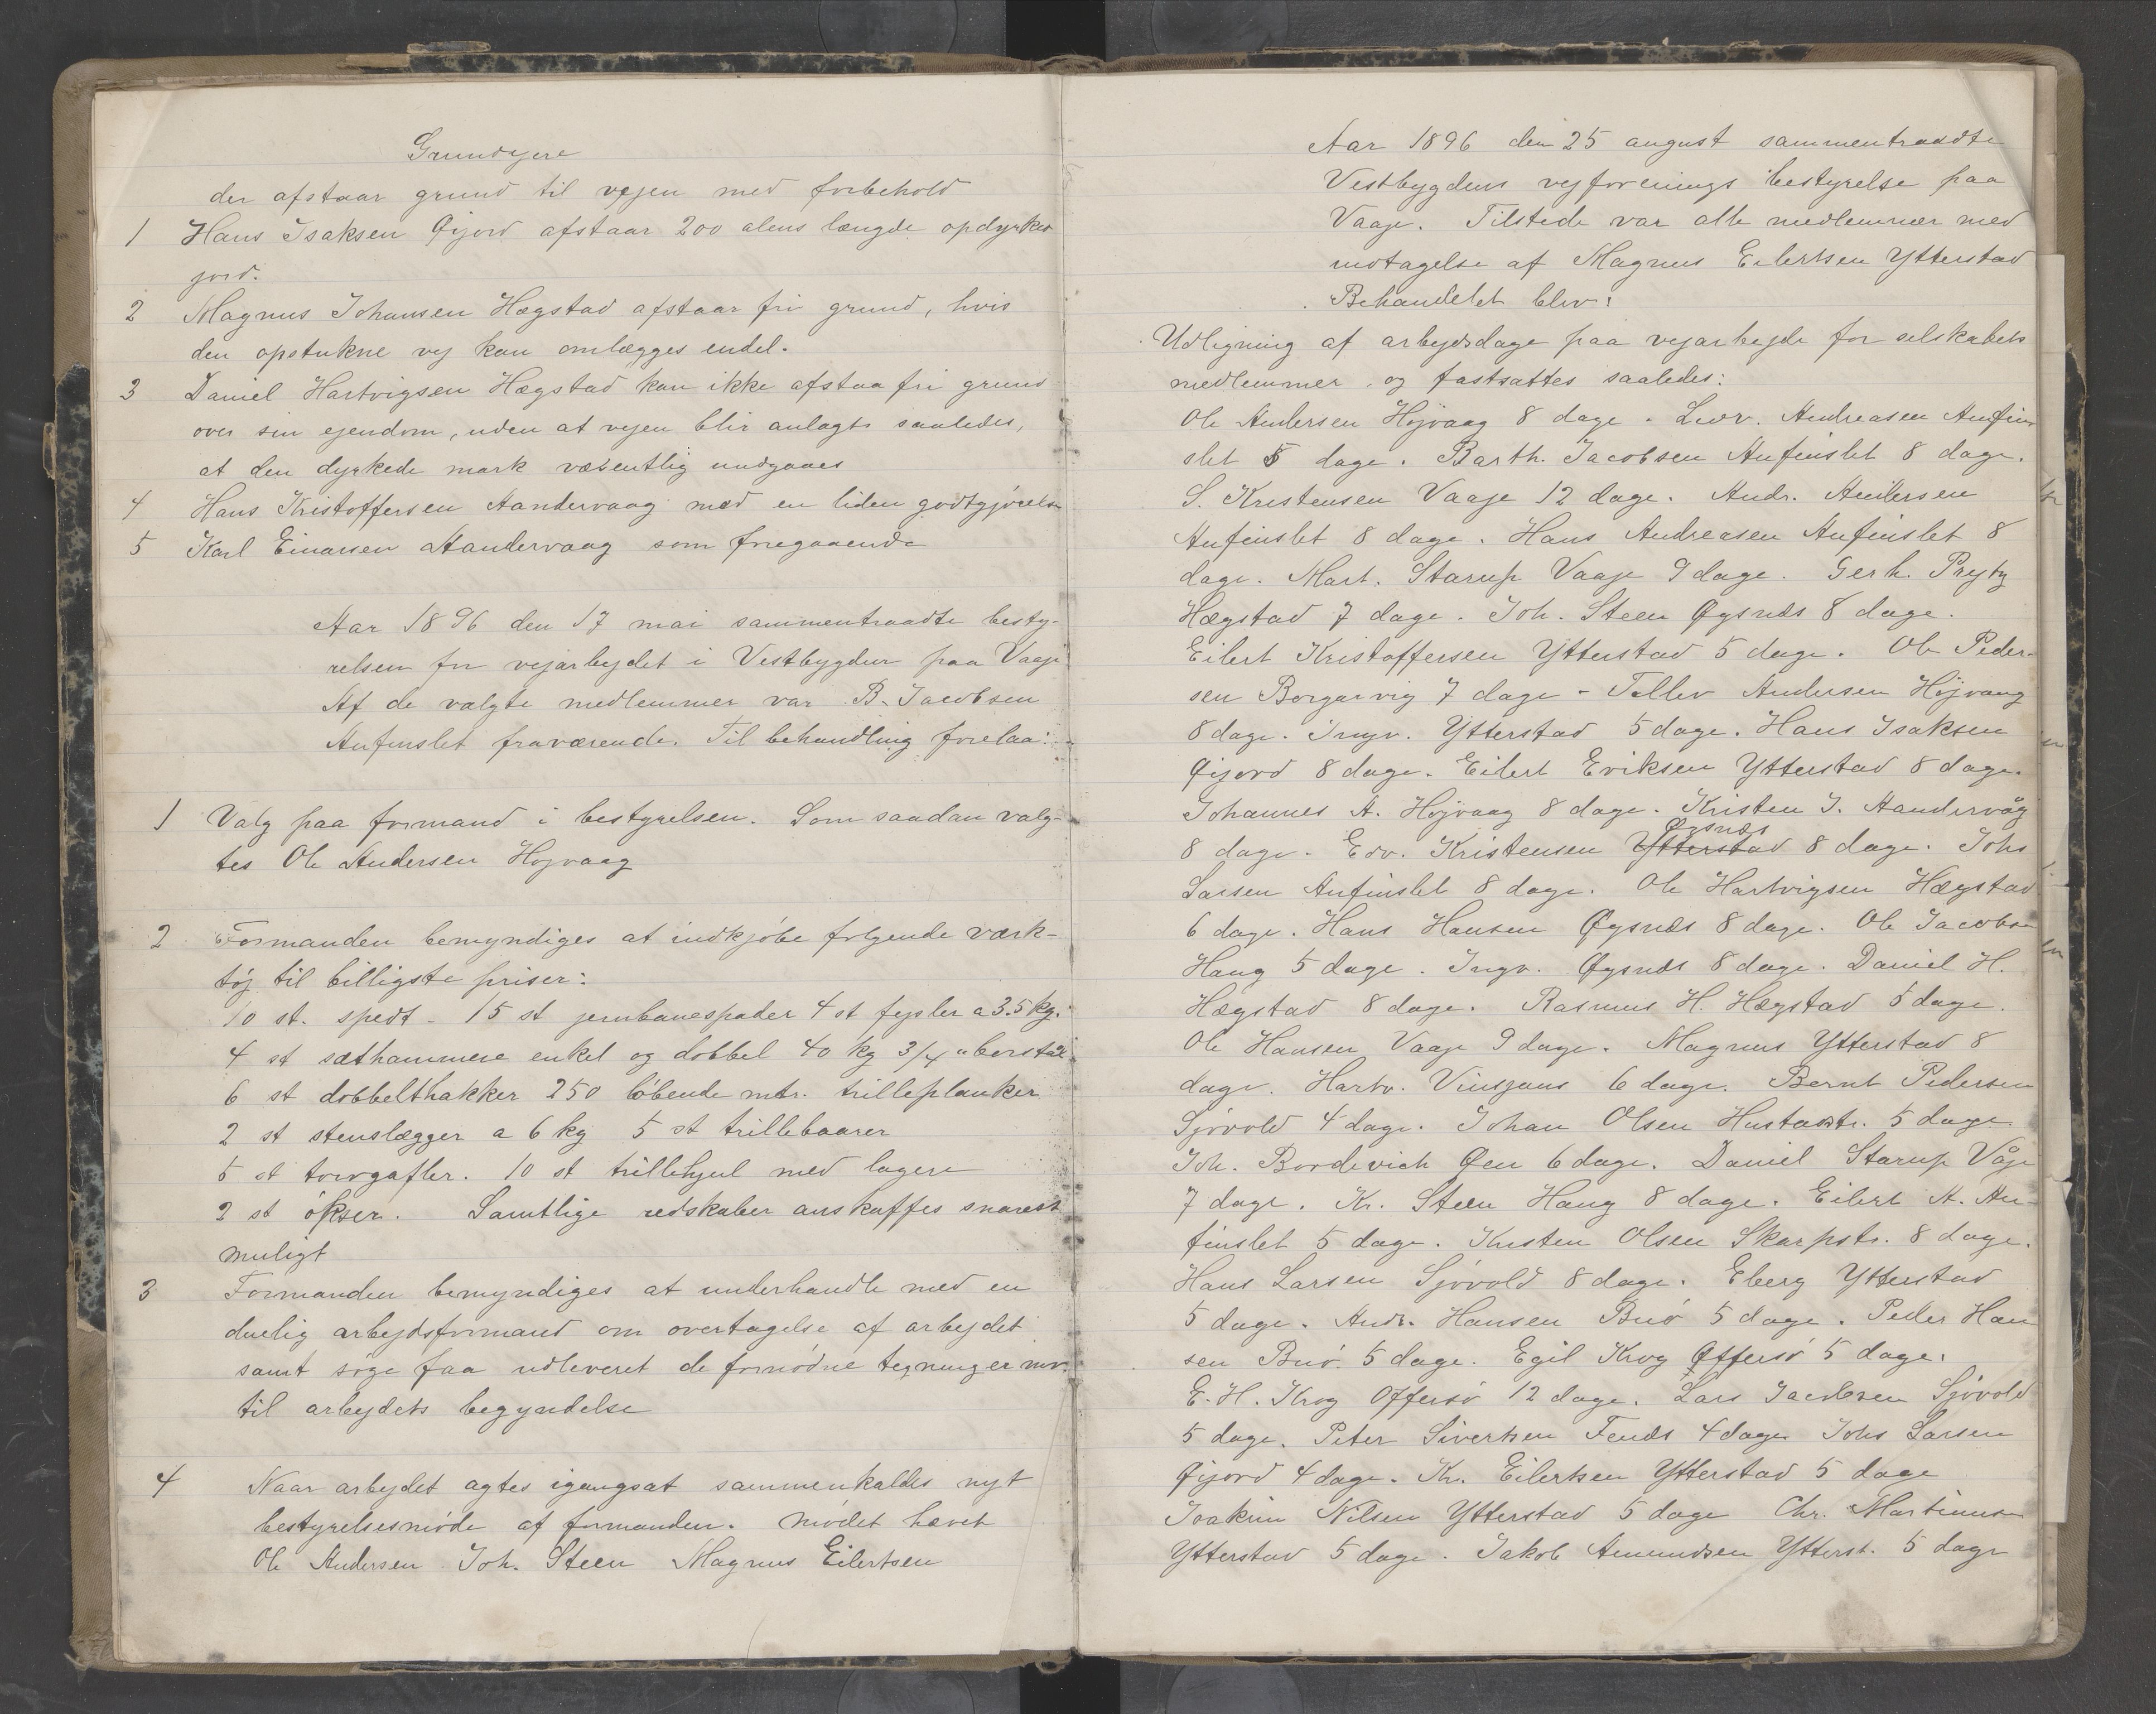 Grundejere
der afstaar grund til vejen med forbehold
1 Hans Isaksen Øijord afstaar 200 alens længde opdyrket
jord.
2 Magnus Johansen Hægstad afstaar fri grund, hvis
den opstukne vej kan omlægges endel.
3 Daniel Hartvigsen Hægstad kan ikke afstaa fri grund
over sin ejendom, uden at vejen blir anlagt saaledes,
at den dyrkede mark væsentlig undgaaes
4 Hans Kristoffersen Aandervaag med en liden godtgjörelse
5 Karl Einarsen Aandervaag som foregaaende
Aar 1896 den 17 mai sammentraadte besty-
relsen for vejarbejdet i Vestbygden paa Vaaje
Af de valgte medlemmer var B. Jacobsen
Anfinslet fraværende. Til behandling forelaa:
1 Valg paa formand i bestyrelsen. Som saadan valg-
tes Ole Andersen Højvaag
2 Formanden bemyndiges at indkjöbe følgende værk-
töj til billigste priser:
10 st. spedt - 15 st jernbanespader 4 st fejsler a 3.5 kg.
4 st sæthammere enkel og dobbel 40 kg 3/4" borstål
6 st dobbelthakker 250 löbende mtr. trilleplanker
2 st stenslægger a 6 kg 5 st trillebaarer
5 st torvgafler. 10 st trillehjul med lagere
2 st ökser. Samtlige redskaber anskaffes snarest
muligt
3 Formanden bemyndiges at underhandle med en
duelig arbejdsformand om overtagelse af arbejdet
samt söge faa udleveret de fornödne tegninger mv.
til arbejdets begyndelse
4 Naar arbejdet agtes igangsat sammenkaldes nyt
bestyrelsesmöde af formanden. Mödet hævet
Ole Andersen Joh. Steen Magnus Eilertsen
Aar 1896 den 25 august sammentraadte
Vestbygdens vejforenings bestyrelse paa
Vaaje. Tilstede var alle medlemmer med
undtagelse af Magnus Eilertsen Ytterstad
Behandelet blev:
Udligning af arbejdsdage paa vejarbejde for selskabets
medlemmer, og fastsattes saaledes:
Ole Andersen Höjvaag 8 dage. Ludv. Andreasen Anfin-
slet 5 dage. Barth. Jacobsen Anfinslet 8 dage.
S. Kristensen Vaaje 12 dage. Andr. Andersen
Anfinslet 8 dage. Hans Andreasen Anfinslet 8
dage. Mart. Starup Vaaje 9 dage. Gerh. Prejtz
Hægstad 7 dage. Joh. Steen Øgsnæs 8 dage.
Eilert Kristoffersen Ytterstad 5 dage. Ole Peder-
sen Borgarvig 7 dage - Tellev Andersen Höjvaag
8 dage. Ingv. Ytterstad 5 dage. Hans Isaksen
Øijord 8 dage. Eilert Eriksen Ytterstad 8 dage.
Johannes A. Höjvaag 8 dage. Kristen J. Aandervåg
8 dage. Edv. Kristensen Ytterstad Øgsnæs 8 dage. Johs
Larsen Anfinslet 8 dage. Ole Hartvigsen Hægstad
6 dage. Hans Hansen Øgsnæs 8 dage. Ole Jacobsen
Haug 5 dage. Ingv. Øgsnæs 8 dage. Daniel H.
Hægstad 8 dage. Rasmus H. Hægstad 5 dage.
Ole Hansen Vaaje 9 dage. Magnus Ytterstad 8
dage. Hartv. Vinsjans 6 dage. Bernt Pedersen
Sjövold 4 dage. Johan Olsen 5 dage
Joh. Bordevich Øen 6 dage. Daniel Starup Våje
7 dage. Kr. Steen Haug 8 dage. Eilert A. An-
finslet 5 dage. Kristen Olsen Skarpstr. 8 dage.
Hans Larsen Sjövold 8 dage. Eberg Ytterstad
5 dage. Andr. Hansen Buö 5 dage. Peder Han
sen Buö 5 dage. Egil Krog Offersö 5 dage.
E. H. Krog Offersö 12 dage. Lars Jacobsen Sjövold
5 dage. Peter Sivertsen Fenæs 4 dage Johs Larsen
Øijord 4 dage. Kr. Eilertsen Ytterstad 5 dage
Joakim Nilsen Ytterstad 5 dage Chr. Martinusen
Ytterstad 5 dage. Jakob Amundsen Ytterst. 5 dage